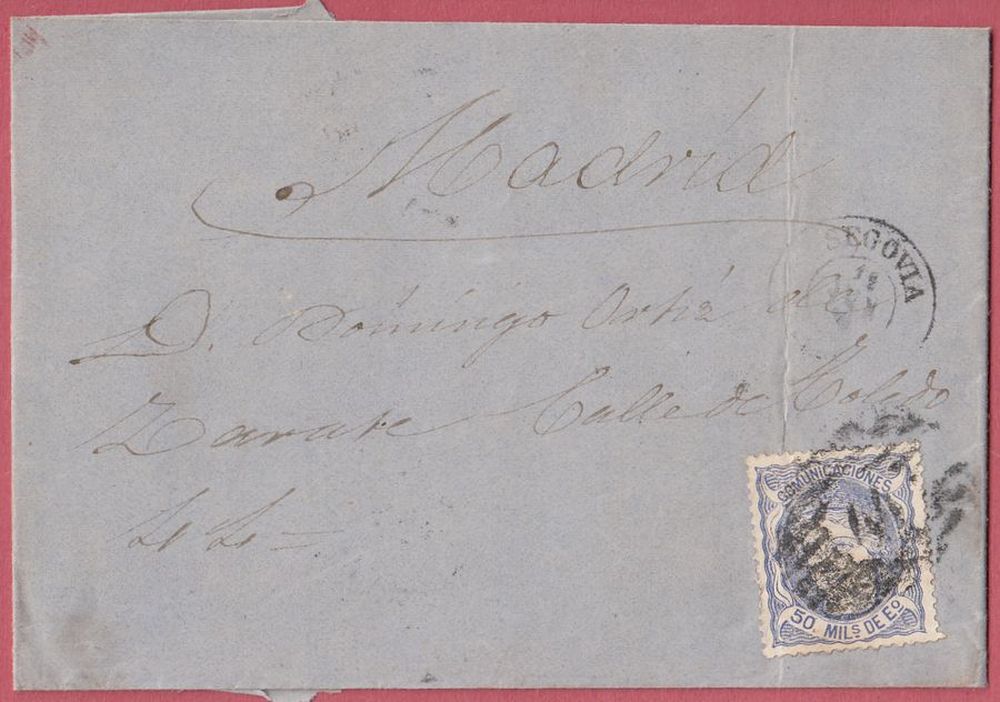 Madrid
SEGOVIA
11
D. Domingo Ortiz de
Zarate Calle de Toledo
44=
COMUNICACIONES
50 MILS DE Eº